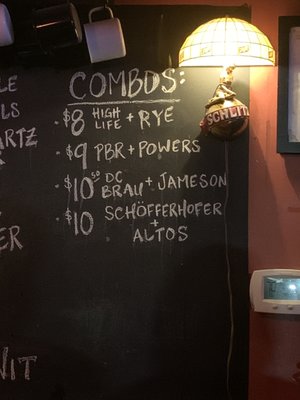 COMBOS:
· $8 HIGH LIFE + RYE
· $9 PBR + POWERS
· $10.50 DC BRAU + JAMESON
· $10 SCHÖFFERHOFER
+
ALTOS
LE
LS
ARTZ
ER
NIT
SCHLITZ